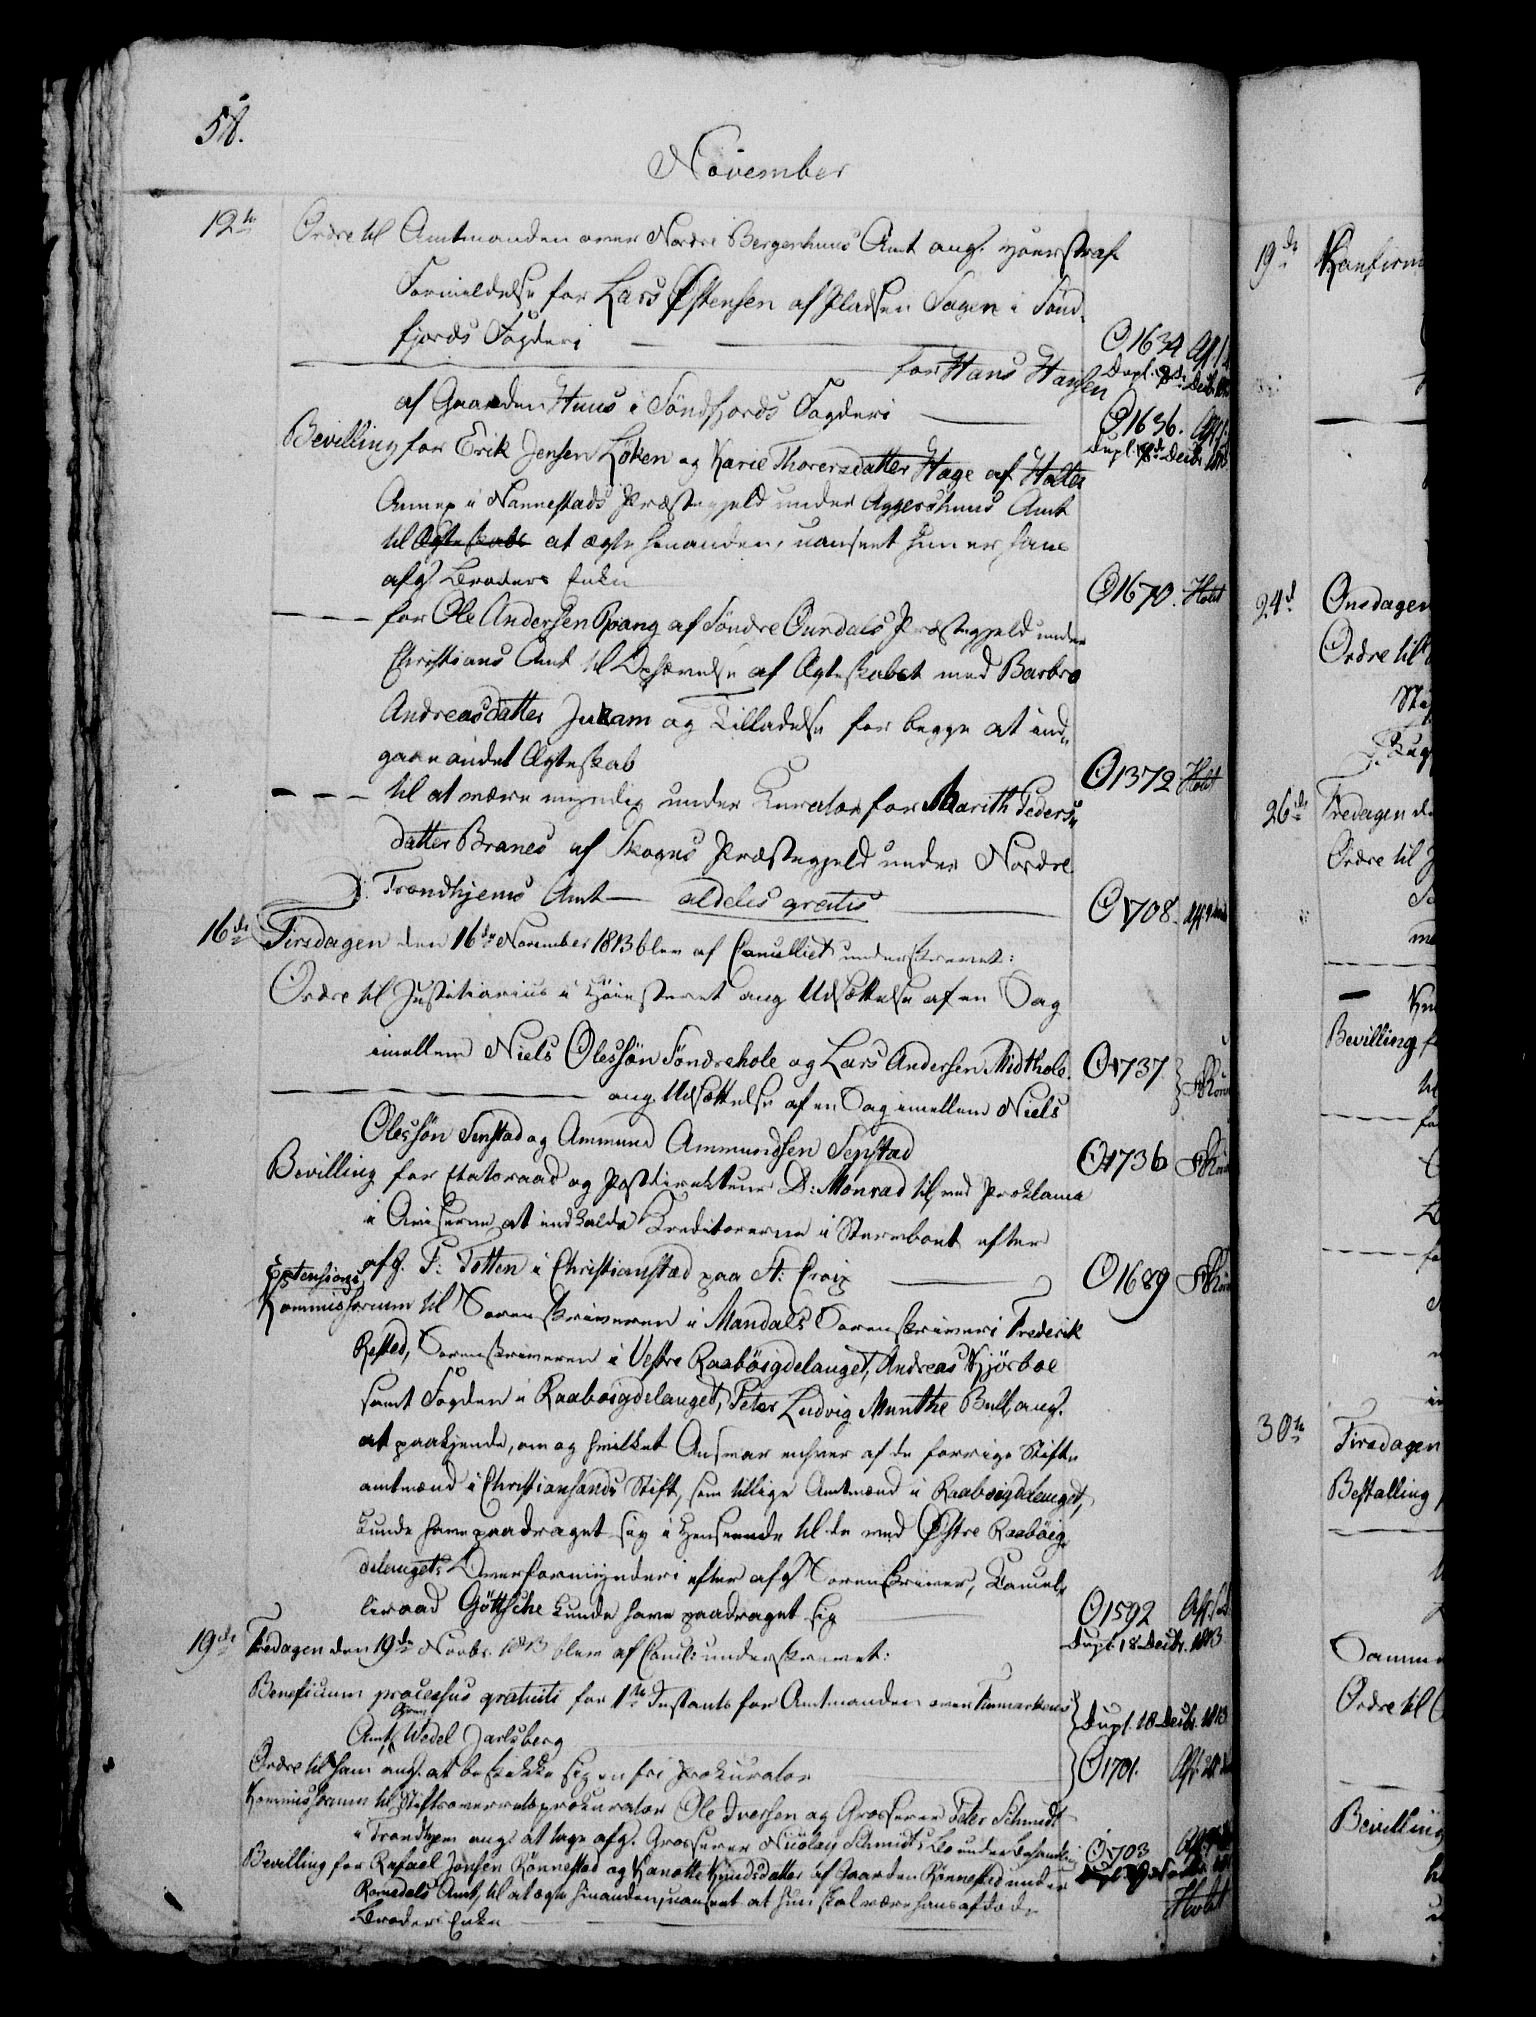 58.
November
12te Ordre til Amtmanden over Nordre Bergenhuus Amt ang.
Formildelse for Lars Østensen af Pladsen Sagen i Sönd-
fjords Fogderi O 1634
for Hans Hansen Dupl. 8de Decbr.
af Gaarden Huus i Söndfjords Fogderi O 1636.
Dupl. 8de Decbr.
Bevilling for Erik Jensen Löken og Karie Thorersdatter Hage af Holter
Annex i Nannestads Præstegjeld under Aggershuus Amt
til Ægteskabs at ægte hinanden, uanseet hun er hans
afg. Broders Enke O 1670. Holst
for Ole Andersen Ravang af Söndre Ourdals Præstegjeld under
Christians Amt til Ophævelse af Ægteskabet med Barbro
Andreasdatter Jukam og Tilladelse for begge at ind-
gaae andet Ægteskab O 1372 Holst
til at være myndig under Curator for Marith Peders-
datter Branes af Skogns Præstegjeld under Nordre
Trondhjems Amt — aldeles gratis O 1708.
16de Tirsdagen den 16de November 1813 blev af Cancelliet underskrevet:
Ordre til Justitiarius i Höiesteret ang. Udsættelse af en Sag
imellem Niels Olessön Söndrehole og Lars Andersen Midthole. O 1737
ang. Udsættelse af en Sag imellem Niels
Olessön Senstad og Ammund Ammundsen Senstad O 1736
Bevilling for Etatsraad og Postdirekteur D: Monrad til, ved Proklama
i Aviserne, at indkalde Kreditorerne i Sterboet efter
afg. P: Totten i Christianstæd paa St: Croix O 1689
Extensions
Kommissorium til Sorenskriveren i Mandals Sorenskriveri Frederik
Rested, Sorenskriveren i Vestre Raaböigdelauget, Andreas Kjörboe
samt Fogden i Raaboigdelauget, Peter Ludvig Munthe Bull, ang.
at paakjende, om og hvilket Ansvar enhver af de forrige Stifts-
amtmænd i Christiansands Stift, som tillige Amtmænd i Raaboigdelauget,
kunde have paadraget sig i Henseende til de ved Østre Raaböig-
delaugets Overformynderi efter afg. Sorenskriver, Kancel-
lieraad Göttsche kunde have paadraget sig O 1592
Dupl. 18 Decbr. 1813
19de Fredagen den 19de Novbr. 1813 blev af Canc: underskrevet:
Beneficium processus gratuiti for 1ste Instants for Amtmanden over Finmarkens
Grev
Amt, Wedel Jarlsberg Dupl. 18 Decbr. 1813
Ordre til ham ang. at beskikke sig en fri Prokurator O 1701.
Kommissorium til Stiftsoverretsprokurator Ole Iversen og Grosserer Peter Schmidt
i Trondhjem ang. at tage afg. Grosserer Nicolay Schmidts Bo under Behandling O 1703
Bevilling for Rafael Jonsen Rönnestad og Kanutte Knudsdatter af Gaarden Rönnestad under
Romsdals Amt, til at ægte hinanden, uanseet at hun skal være hans afdöde
Broders Enke Holst
19de Konfirm
24d Onsdagen
Ordre til
26de Fredagen d
Ordre til
Bevilling f
30te Tirsdagen
Bestalling
Samme
Ordre til
Bevilling